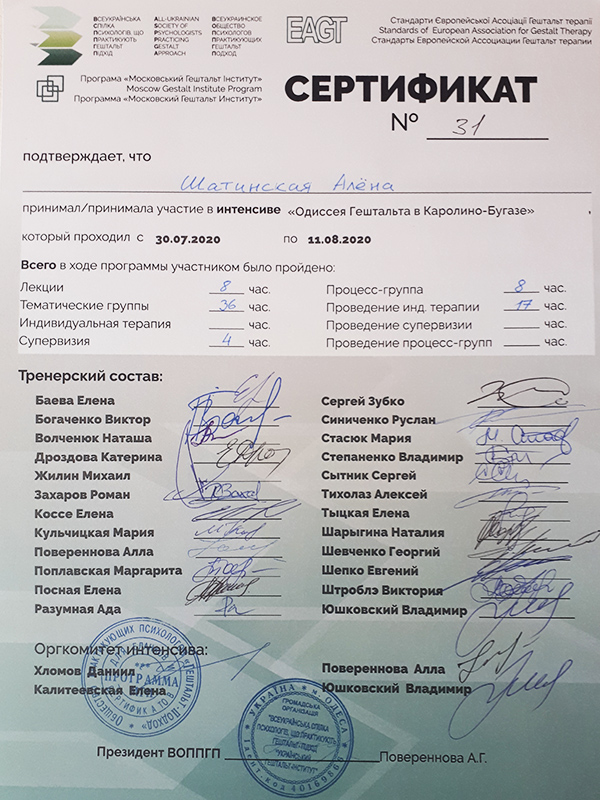 ВСЕУКРАЇНСЬКА
СПІЛКА
ПСИХОЛОГІВ, ЩО
ПРАКТИКУЮТЬ
ГЕШТАЛЬТ
ПІДХІД
ALL-UKRAINIAN
SOCIETY OF
PSYCHOLOGISTS
PRACTICING
GESTALT
APPROACH
ВСЕУКРАИНСКОЕ
ОБЩЕСТВО
ПСИХОЛОГОВ
ПРАКТИКУЮЩИХ
ГЕШТАЛЬТ
ПОДХОД
EAGT
Стандарти Європейської Асоціації Гештальт терапії
Standards of European Association for Gestalt Therapy
Стандарты Европейской Ассоциации Гештальт терапии
Програма «Московський Гештальт Інститут»
Moscow Gestalt Institute Program
Программа «Московский Гештальт Институт»
СЕРТИФИКАТ
№ 31
подтверждает, что
Шатинская Алёна
принимал/принимала участие в интенсиве «Одиссея Гештальта в Каролино-Бугазе»
который проходил с 30.07.2020 по 11.08.2020
Всего в ходе программы участником было пройдено:
Лекции 8 час. Процесс-группа 8 час.
Тематические группы 36 час. Проведение инд. терапии 17 час.
Индивидуальная терапия час. Проведение супервизии час.
Супервизия 4 час. Проведение процесс-групп час.
Тренерский состав:
Баева Елена
Богаченко Виктор
Волченюк Наташа
Дроздова Катерина
Жилин Михаил
Захаров Роман
Коссе Елена
Кульчицкая Мария
Повереннова Алла
Поплавская Маргарита
Посная Елена
Разумная Ада
Сергей Зубко
Синиченко Руслан
Стасюк Мария
Степаненко Владимир
Сытник Сергей
Тихолаз Алексей
Тыцкая Елена
Шарыгина Наталия
Шевченко Георгий
Шепко Евгений
Штроблэ Виктория
Юшковский Владимир
Оргкомитет интенсива:
Хломов Даниил Повереннова Алла
Калитеевская Елена Юшковский Владимир
ПРОГРАММА
УКРАЇНА м. ОДЕСА
ГРОМАДСЬКА
ОРГАНІЗАЦІЯ
"ВСЕУКРАЇНСЬКА СПІЛКА
ПСИХОЛОГІВ, ЩО ПРАКТИКУЮТЬ
ГЕШТАЛЬТ ПІДХІД
Президент ВОППГП Повереннова А.Г.